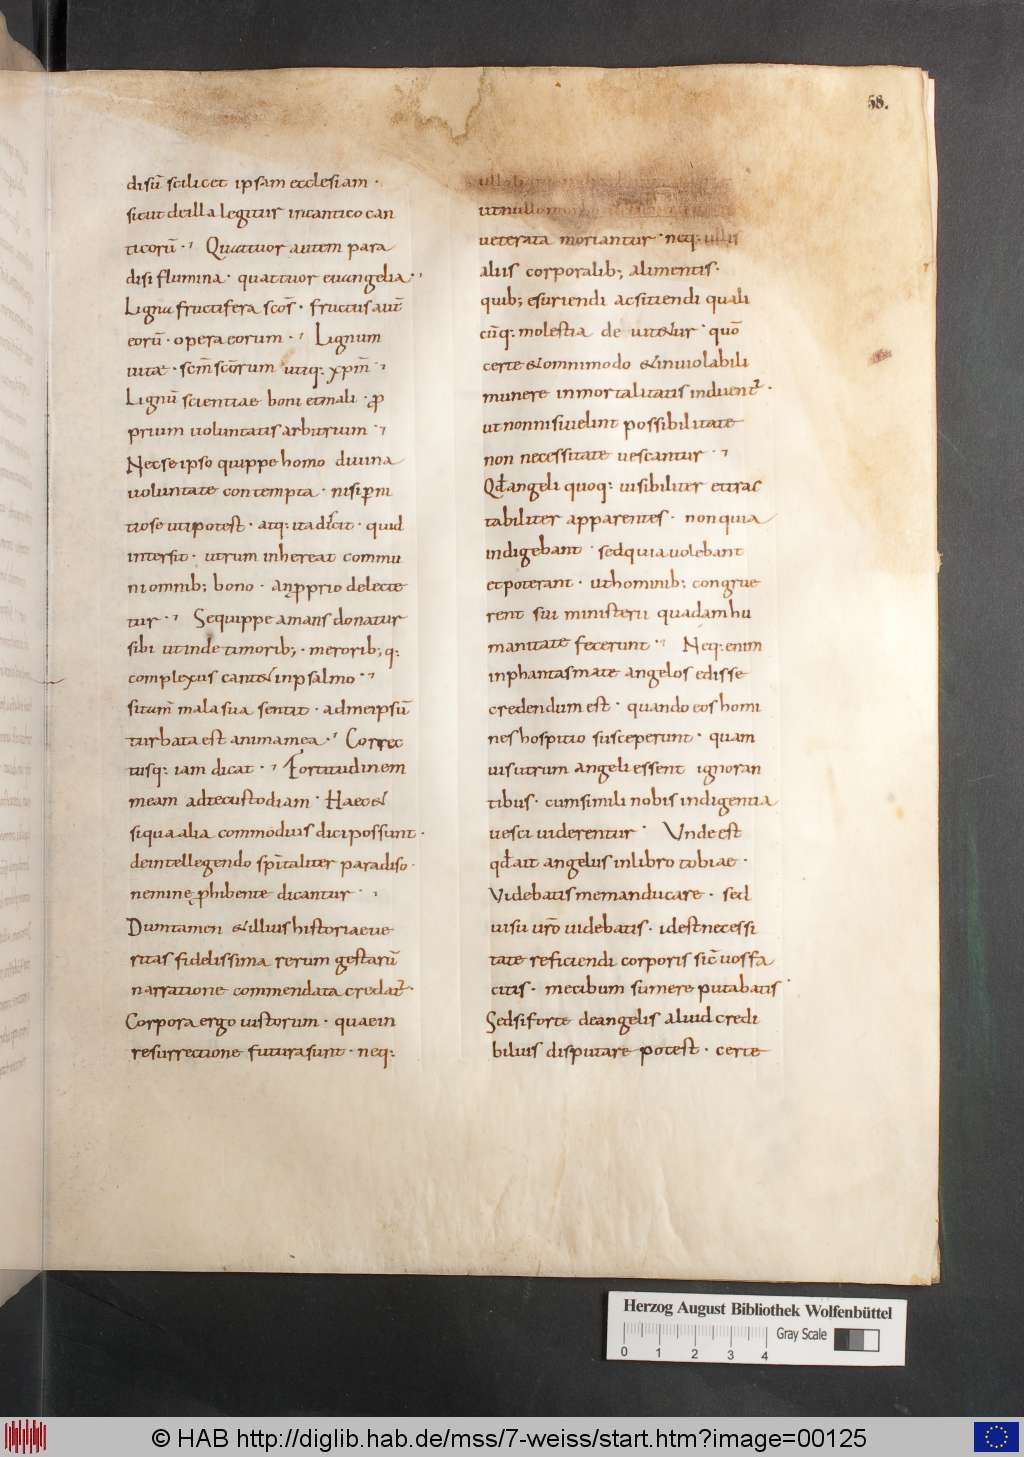 58.
disū scilicet ipsam ecclesiam ·
sicut deilla legitur incantico can
ticorū · Quattuor autem para
disi flumina · quattuor euangelia ·
Ligna fructifera scōs · fructus aut̄
eorū · opera eorum · Lignum
uitae · scm̄ scōrum utiq: xp̄m ·
Lignū scientiae boni etmali · ꝓ
prium uoluntatis arbitrium ·
Necseipso quippe homo diuina
uoluntate contempta · nisi ꝑni
tiose utipotest · atq: ita dicit · quid
intersit · utrum inhereat commu
ni omnib; bono · an ꝓprio delecte
tur · Sequippe amans donatur
sibi utinde timorib; · merorib; q:
complexus cantet inpsalmo ·
situm̄ mala sua sentit · admeipsū
turbata est anima mea · Correc
tusq: iam dicat · Fortitudinem
meam adtecustodiam · Haec &
siqua alia commodius dici possunt ·
deintellegendo spīritaliter paradiso ·
nemine ꝓhibente dicantur ·
Dumtamen & illius historiae ue
ritas fidelissima rerum gestarū
narratione commendata credat᷑ ·
Corpora ergo uistorum · quae in
resurrectione futura sunt · neq:
utnullo
ueterata moriantur · neq: ullis
aliis corporalib; alimentis ·
quib; esuriendi acsitiendi quali
cūq: molestia de uitetur · quō
certe & omnimodo & inuiolabili
munere inmortalitatis induent᷑ ·
ut nonnisiuelint possibilitate
non necessitate uescantur ·
Qd̄ angeli quoq: uisibiliter ettrac
tabiliter apparentes · non quia
indigebant · sedquia uolebant
etpoterant · uthominib; congrue
rent sui ministerii quadam hu
manitate fecerunt · Neq: enim
inphantasmate angelos edisse
credendum est · quando eos homi
nes hospitio susceperunt · quam
uisutrum angeli essent ignoran
tibus · cumsimili nobis indigentia
uesci uiderentur · Unde est
qd̄ ait angelus inlibro tobiae ·
Videbatis memanducare · sed
uisu uro᷑ uidebatis · idestnecessi
tate reficiendi corporis sic̄ uosfa
citis · mecibum sumere putabatis ·
Sedsiforte deangelis aliud credi
bilius disputare potest · certe
Herzog August Bibliothek Wolfenbüttel
Gray Scale
0 1 2 3 4
© HAB http://diglib.hab.de/mss/7-weiss/start.htm?image=00125